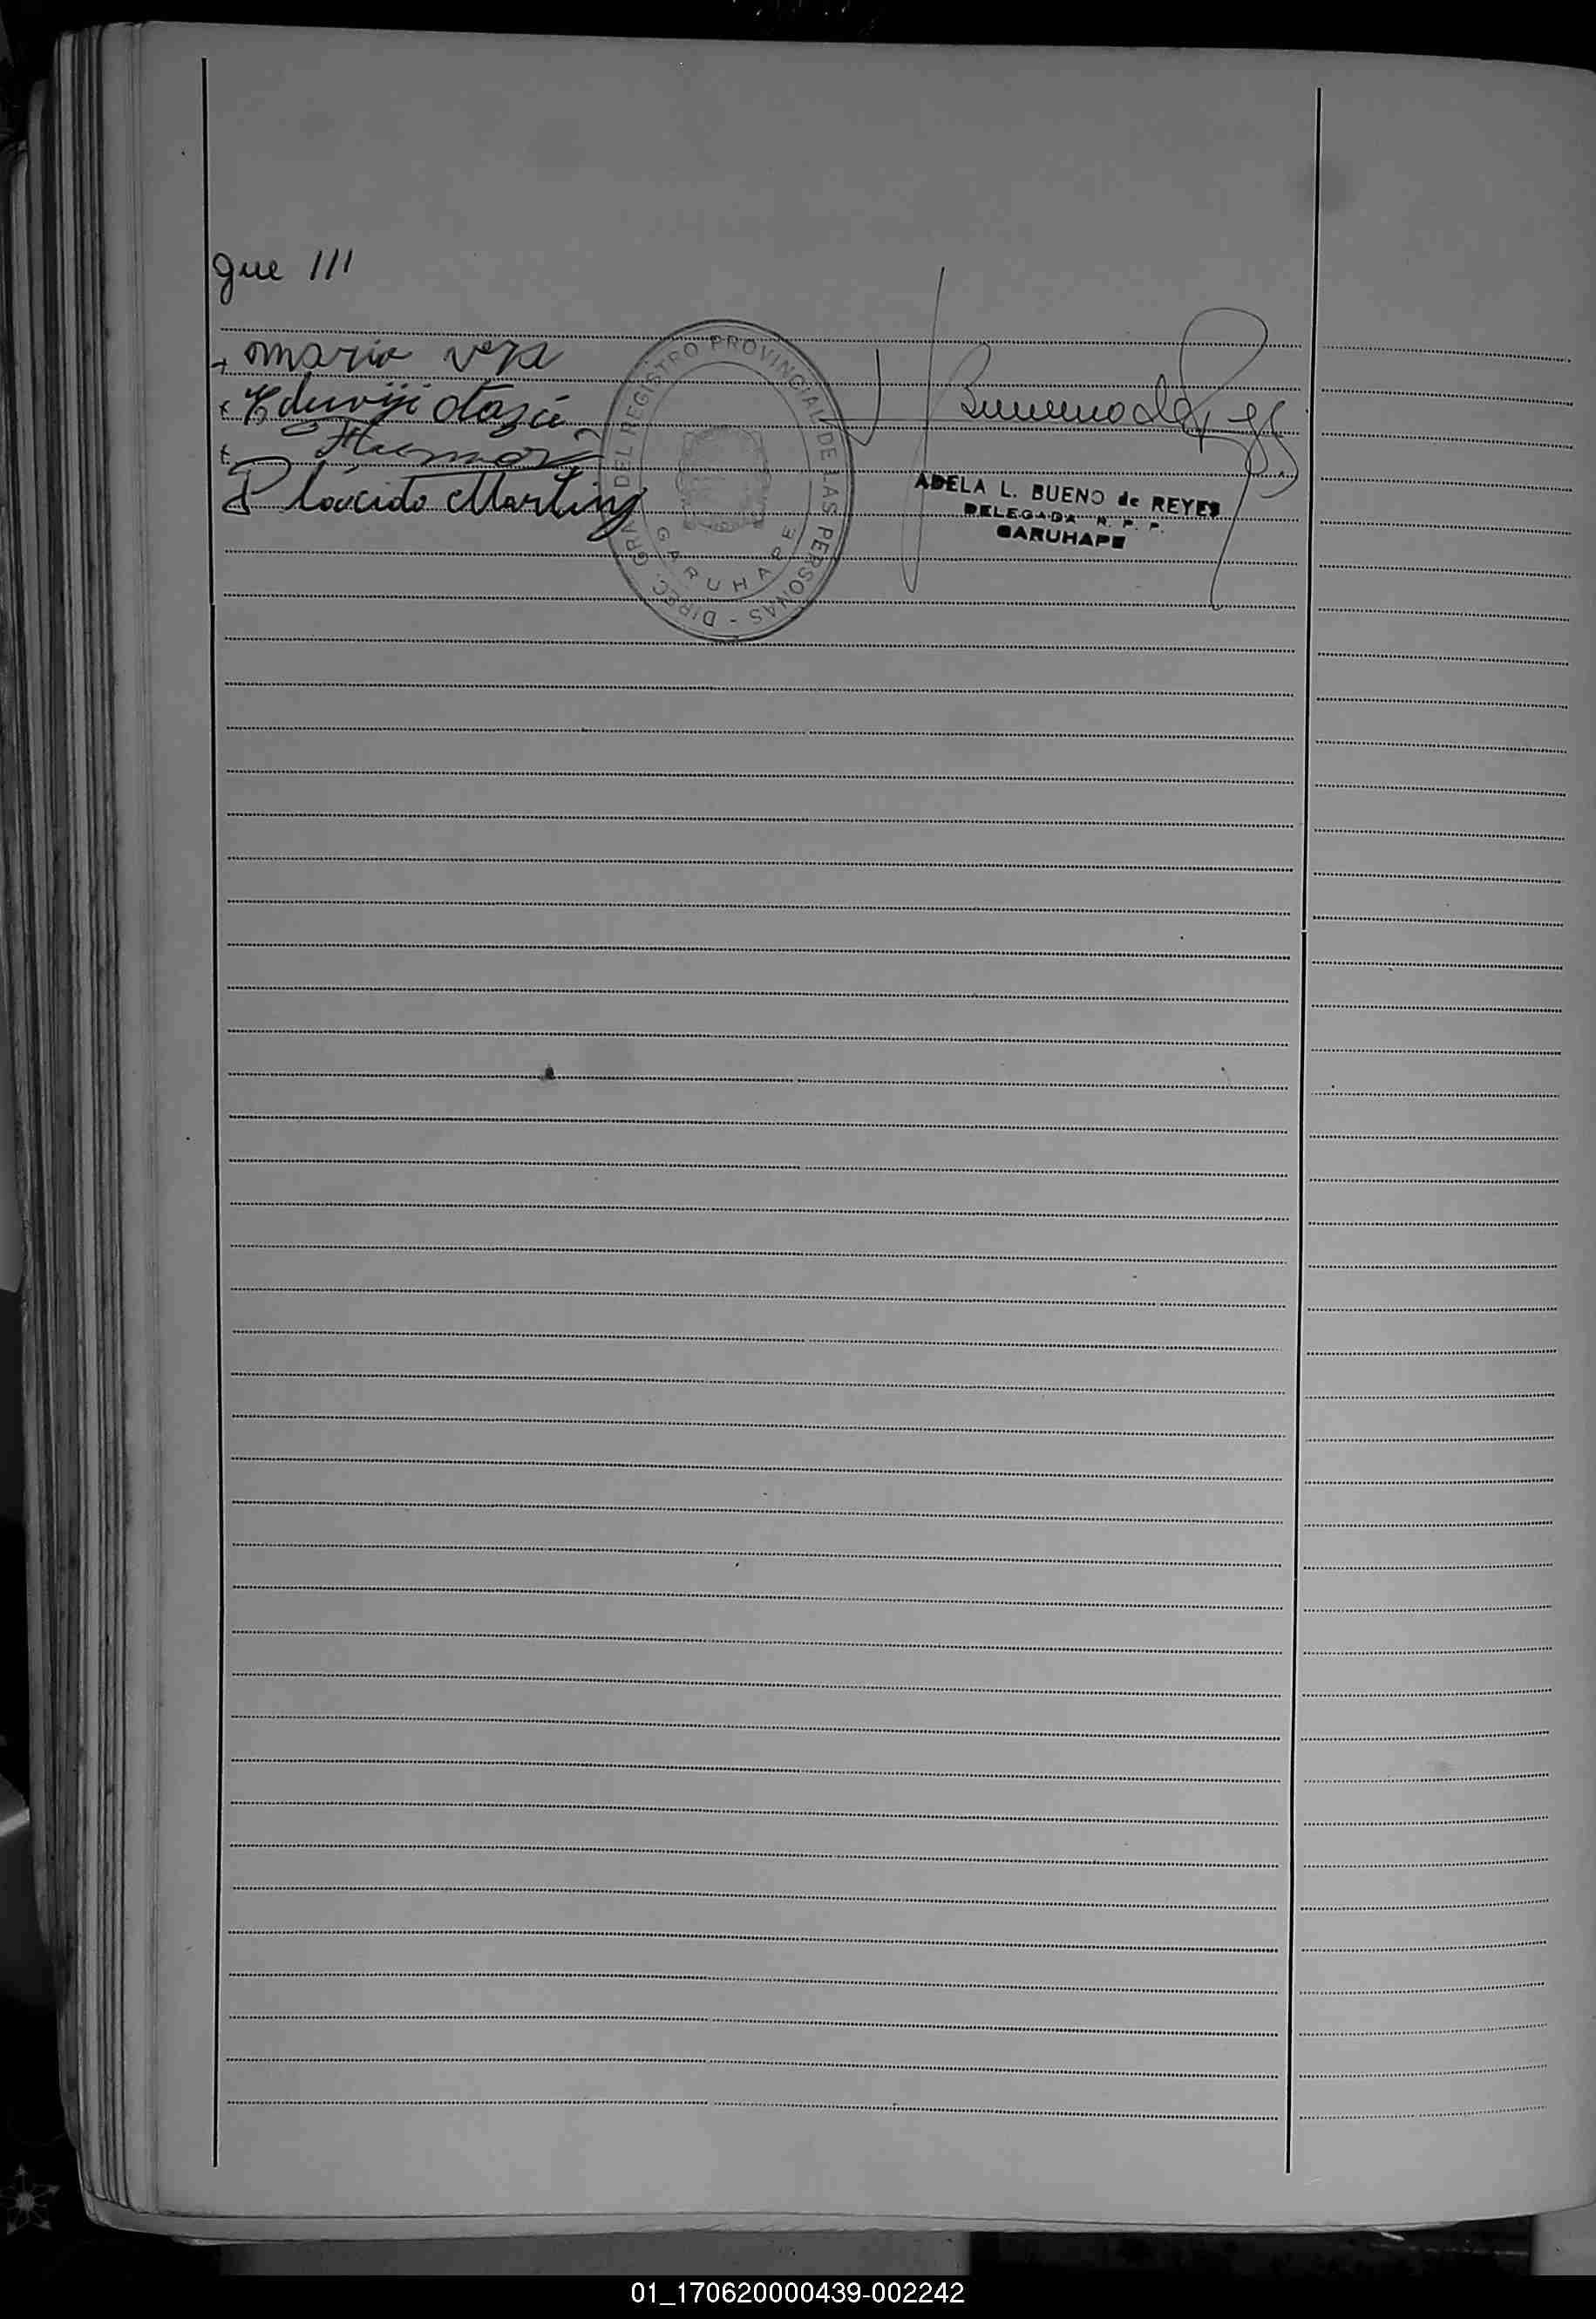 que ///
maria vera
Eduviji otazú
Plácido Martinz
DIREC. GRAL. DEL REGISTRO PROVINCIAL DE LAS PERSONAS -
GARUHAPE
Bueno de Reyes
ADELA L. BUENO de REYES
DELEGADA R. P. P.
GARUHAPE
01_170620000439-002242